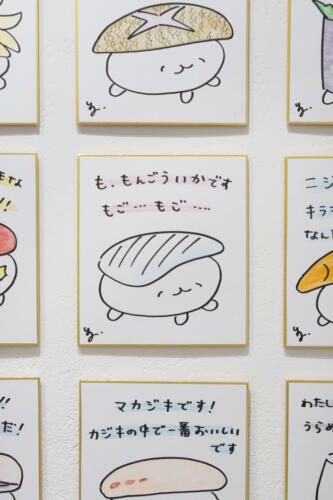 も、もんごういかです
もご…もご….
マカジキです!
カジキの中で一番おいしい
です
!!
だ!
!!
ニジ
キラ
なんだ
わたし
うらめ